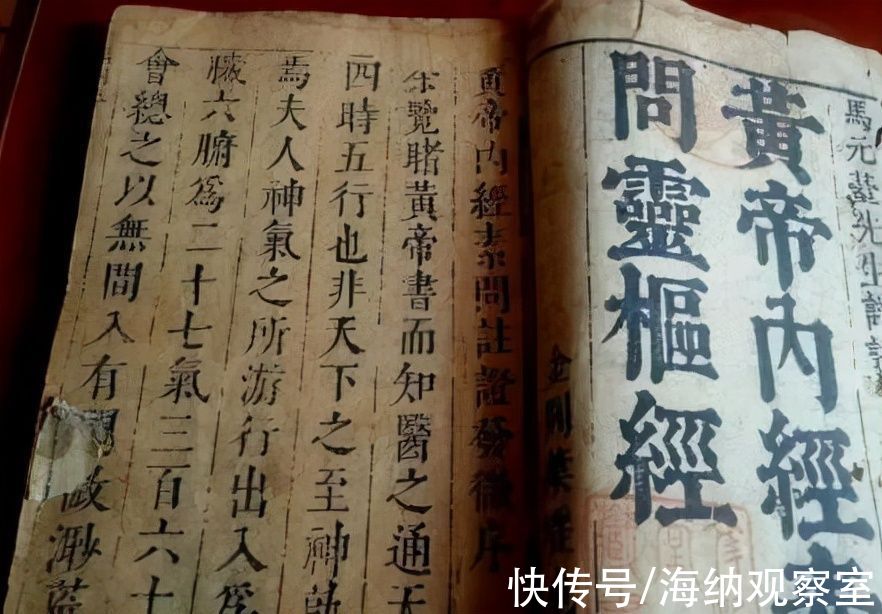 馬元臺先生註證
黃帝內經
問靈樞經
黃帝內經素問註證發微序
余覽睹黃帝書而知醫之通天
四時五行也非天下之至神孰
焉夫人神氣之所游行出入爲
臟六腑爲二十七氣三百六十
會總之以無間入有
快传号/海纳观察室